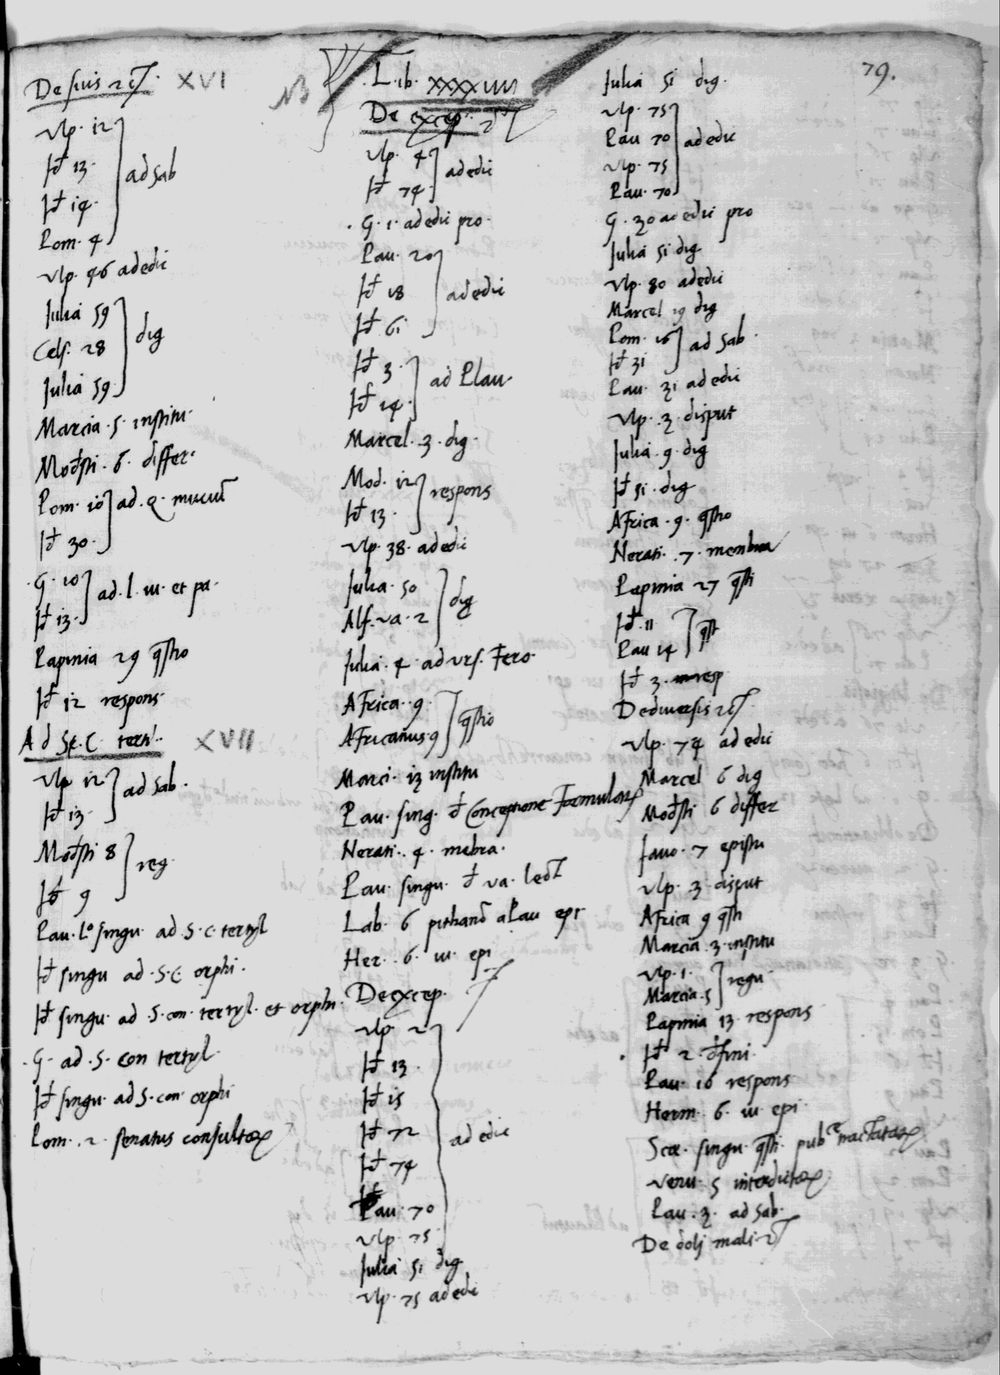 De suis et XVI
Vlp. 12
Id 13.
Id 14.
Pom. 4
ad sab
Vlp. 46 ad edic
Julia 59
Cels. 28
Julia 59.
dig
Marcia. 5. institu.
Modesti. 6. differ.
Pom. 10
Id 30.
ad. Q. mucium
.G. 10
Id 13.
ad. l. iu. et pa.
Papinia 29 questio
Id 12 respons
Ad S. C. tertil. XVII
Vlp 12
Id 13.
ad sab.
Modesti 8
Id 9
reg.
Pau. Lo singu. ad S. C. tertyl
Id singu ad .S. C. orphi.
Id singu. ad .S. con. tertyl. et orphi.
.G. ad .S. con tertyl.
Id singu. ad S. con. orphi
Pom. .2. senatus consultorum
NB
Lib. XXXXIIII
De excep. et
Vlp. 4
Id 74.
ad edic
. G. 1. ad edic pro.
Pau. 20
Id 18
Id 61
ad edic
Id 3.
Id 14.
ad Plau.
Marcel. 3. dig.
Mod. 12
Id 13.
respons
Vlp. 38. ad edic
Julia. 50
Alf. va. 2
dig
Julia. 4. ad urs. Fero.
Africa. 9.
Africanus. 9
questio
Marci. 13 institu
Pau. sing. d Conceptione Formularum
Nerati. 4. mebra.
Pau. singu. d va. lect
Lab. 6 pithano a Pau epi
Her. .6. iu. epi
De excep.
Vlp. 2
Id 13.
Id 15
Id 72
Id 74
Pau. 70
Vlp. 75
ad edic
Julia 51 dig
Vlp. 75 ad edic
79.
Julia 51 dig.
Vlp. 75
Pau 70
Vlp. 75
Pau. 70
ad edic
G. 30 ad edic pro
Julia 51 dig
Vlp. 80 ad edic
Marcel 19 dig
Pom. 16
Id 31
ad sab.
Pau. 31 ad edic
Vlp. 3. disput
Julia. 9. dig
Id 51. dig
Africa. 9. questio
Nerati. .7. membra
Papinia 27 questi
Id. 11
Pau 14
quest
Id 3. resp
De diuersis et
Vlp. 74 ad edic
Marcel 6 dig
Modesti 6 differ
Jauo. 7 epistu
Vlp. 3 disput
Africa 9 questi
Marcia. 3. institu
Vlp. 1.
Marcia. 5
regu.
Papinia 13 respons
. Id 2 defini.
Pau. 16 respons
Herm. 6. iu. epi.
Sce. singu. questi. pubce tractatarum
Venu. 5 interdictorum
Pau. 3. ad sab.
De dolj mali et